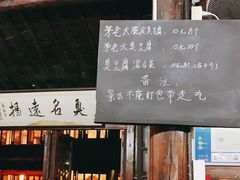 茅老太脆皮臭豆腐,10元8个
茅老太臭豆腐,10元10个
臭豆腐混合装,10元8个(各4个)
备注
景区不能打包带走吃
臭名远扬